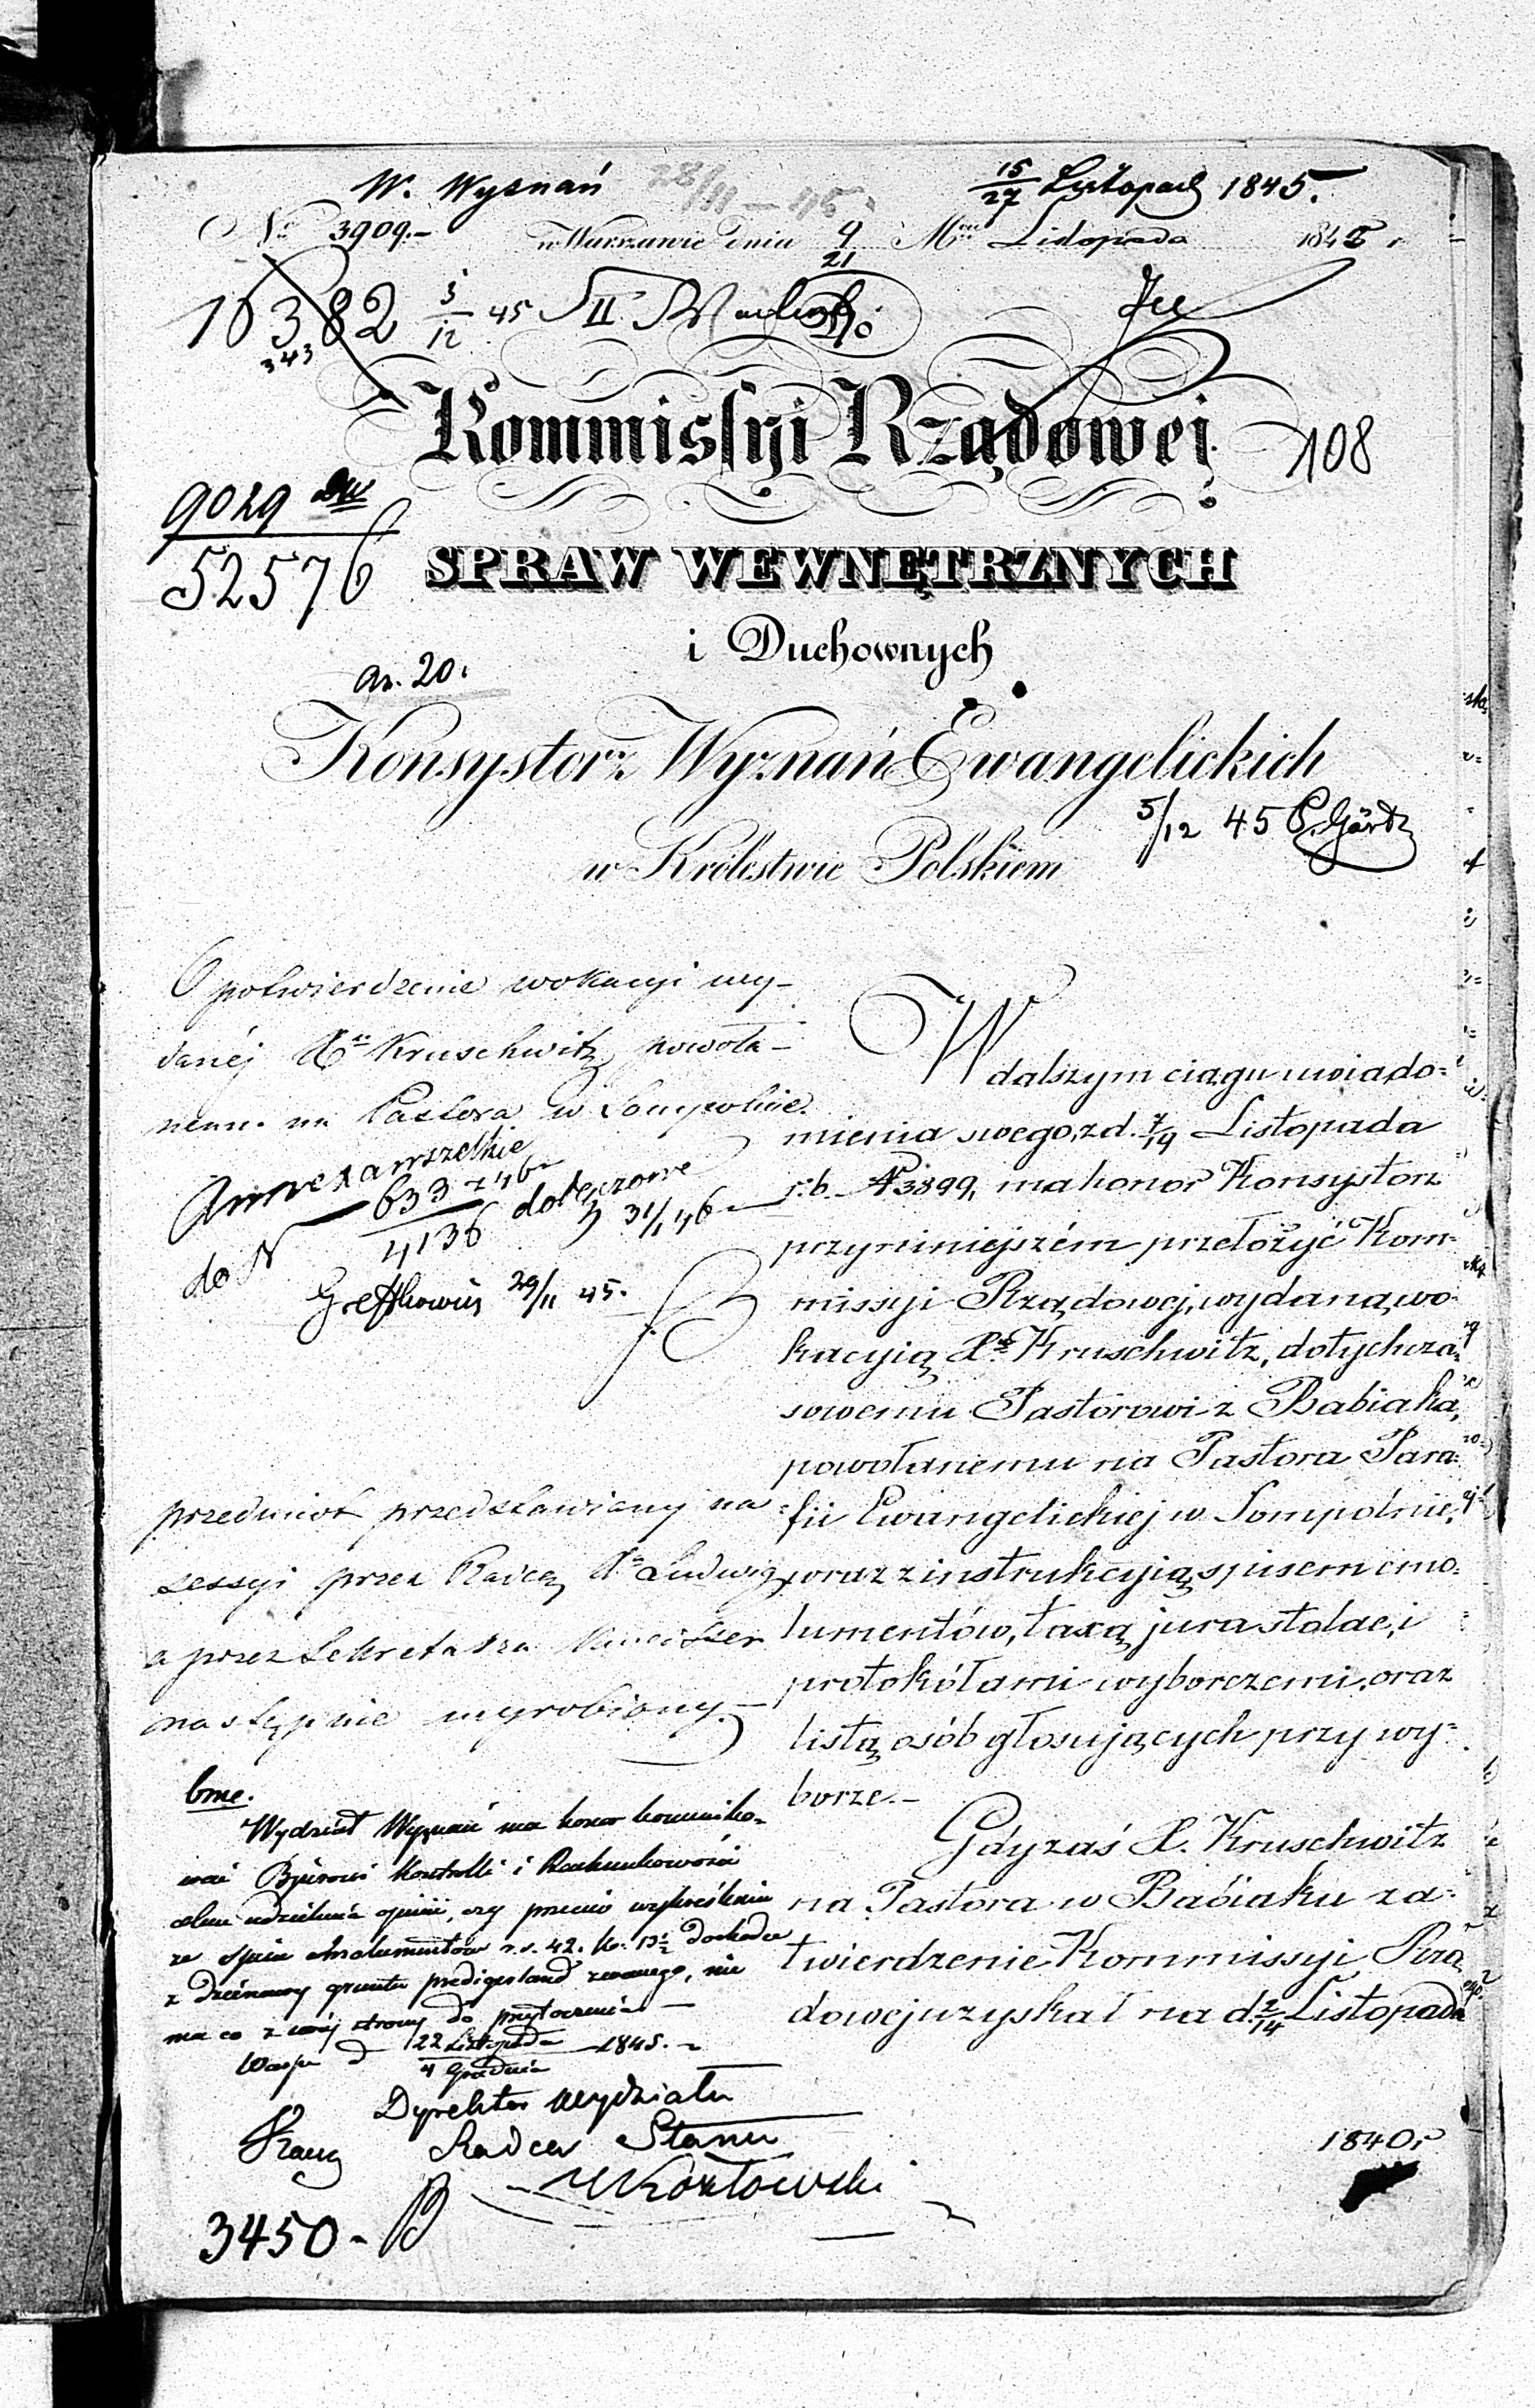 W. Wyznań 28/11 - 45.
15/27 Listopad 1845.
No 3909.- w Warszawie dnia 9/21 Mca Listopada 1845 r
16382 3/12 45 II
343
Kommissyi Rządowej
108
9029 DW
52576
SPRAW WEWNĘTRZNYCH
i Duchownych
an. 20.
Konsystorz Wyznań Ewangelickich
5/12 45
w Królestwie Polskiem
O potwierdzenie wokacyi wy-
danéj Xu Kruschwitz powoła-
nemu na Pastora w Sompolnie.
Annexa wszelkie
do N 633 z 46/4136 dołączone
31/1 46
29/11 45.
przedmiot przedstawiony na
sessyi przez Radcę Ludwig,
a przez Sekretarza
następnie wyrobiony.
bme.
Wydział Wyznań ma honor kommuniko-
wać Bjurowi Kontrolli i Rachunkowości
celem udzielenia opinii, czy przeciw wykreśleniu
ze spisu emolumentów r.s. 42. k. 13½ dochodu
z dzierżawy gruntu predigerland zwanego, nie
ma co z swéj strony do przytoczenia -
Warsz d 22 Listopada/4 Grudnia 1845.
Dyrektor Wydziału
Radca Stanu
Kozłowski
3450 -
W dalszym ciągu uwiado=
mienia swego, z d. 7/19 Listopada
r.b. N 3899, ma honor Konsystorz
przy niniejszém przełożyć Kom=
missyi Rządowej, wydaną wo=
kacyią X. Kruschwitz, dotychcza=
sowemu Pastorowi z Babiaka,
powołanemu na Pastora Para=
fii Ewangelickiej w Sompolnie,
wraz z instrukcyią, spisem emo=
lumentów, taxą jura stolae, i
protokółami wyborczemi, oraz
listą osób głosujących przy wy=
borze.-
Gdy zaś X. Kruschwitz
na Pastora w Babiaku za=
twierdzenie Kommissyi Rzą
dowej uzyskał na d. 2/14 Listopada
1840 r